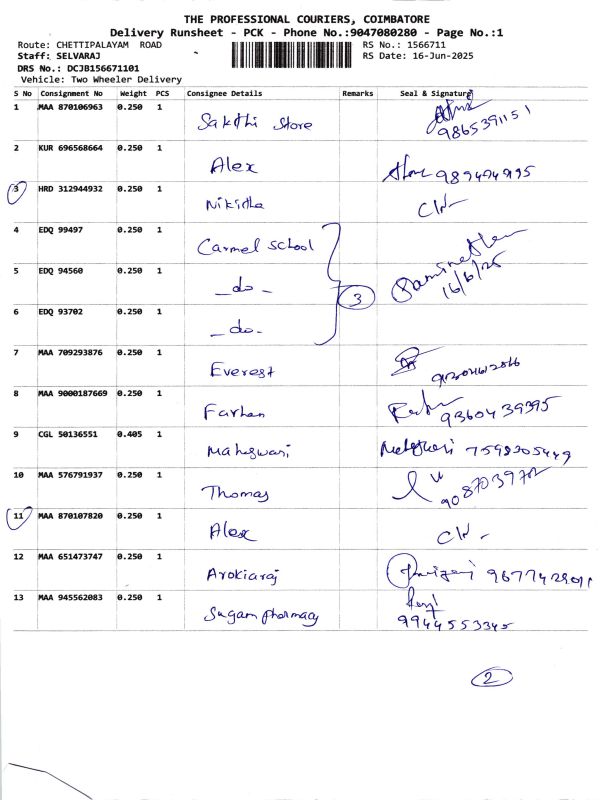 THE PROFESSIONAL COURIERS, COIMBATORE
Delivery Runsheet - PCK - Phone No.:9047080280 - Page No.:1
Route: CHETTIPALAYAM ROAD RS No.: 1566711
Staff: SELVARAJ RS Date: 16-Jun-2025
DRS No.: DCJB156671101
Vehicle: Two Wheeler Delivery
S No Consignment No Weight PCS Consignee Details Remarks Seal & Signature
1 MAA 870106963 0.250 1 Sakthi Store 9865391151
2 KUR 696568664 0.250 1 Alex
3 HRD 312944932 0.250 1 Nikitha
4 EDQ 99497 0.250 1 Carmel School
5 EDQ 94560 0.250 1 -do- 3 16/6/25
6 EDQ 93702 0.250 1 -do-
7 MAA 709293876 0.250 1 Everest
8 MAA 9000187669 0.250 1 Farhan 9360439395
9 CGL 50136551 0.405 1 Maheswari 7598205449
10 MAA 576791937 0.250 1 Thomas 9087039702
11 MAA 870107820 0.250 1 Alex
12 MAA 651473747 0.250 1 Arokiaraj
13 MAA 945562083 0.250 1 Sugam pharmacy 9944553345
2